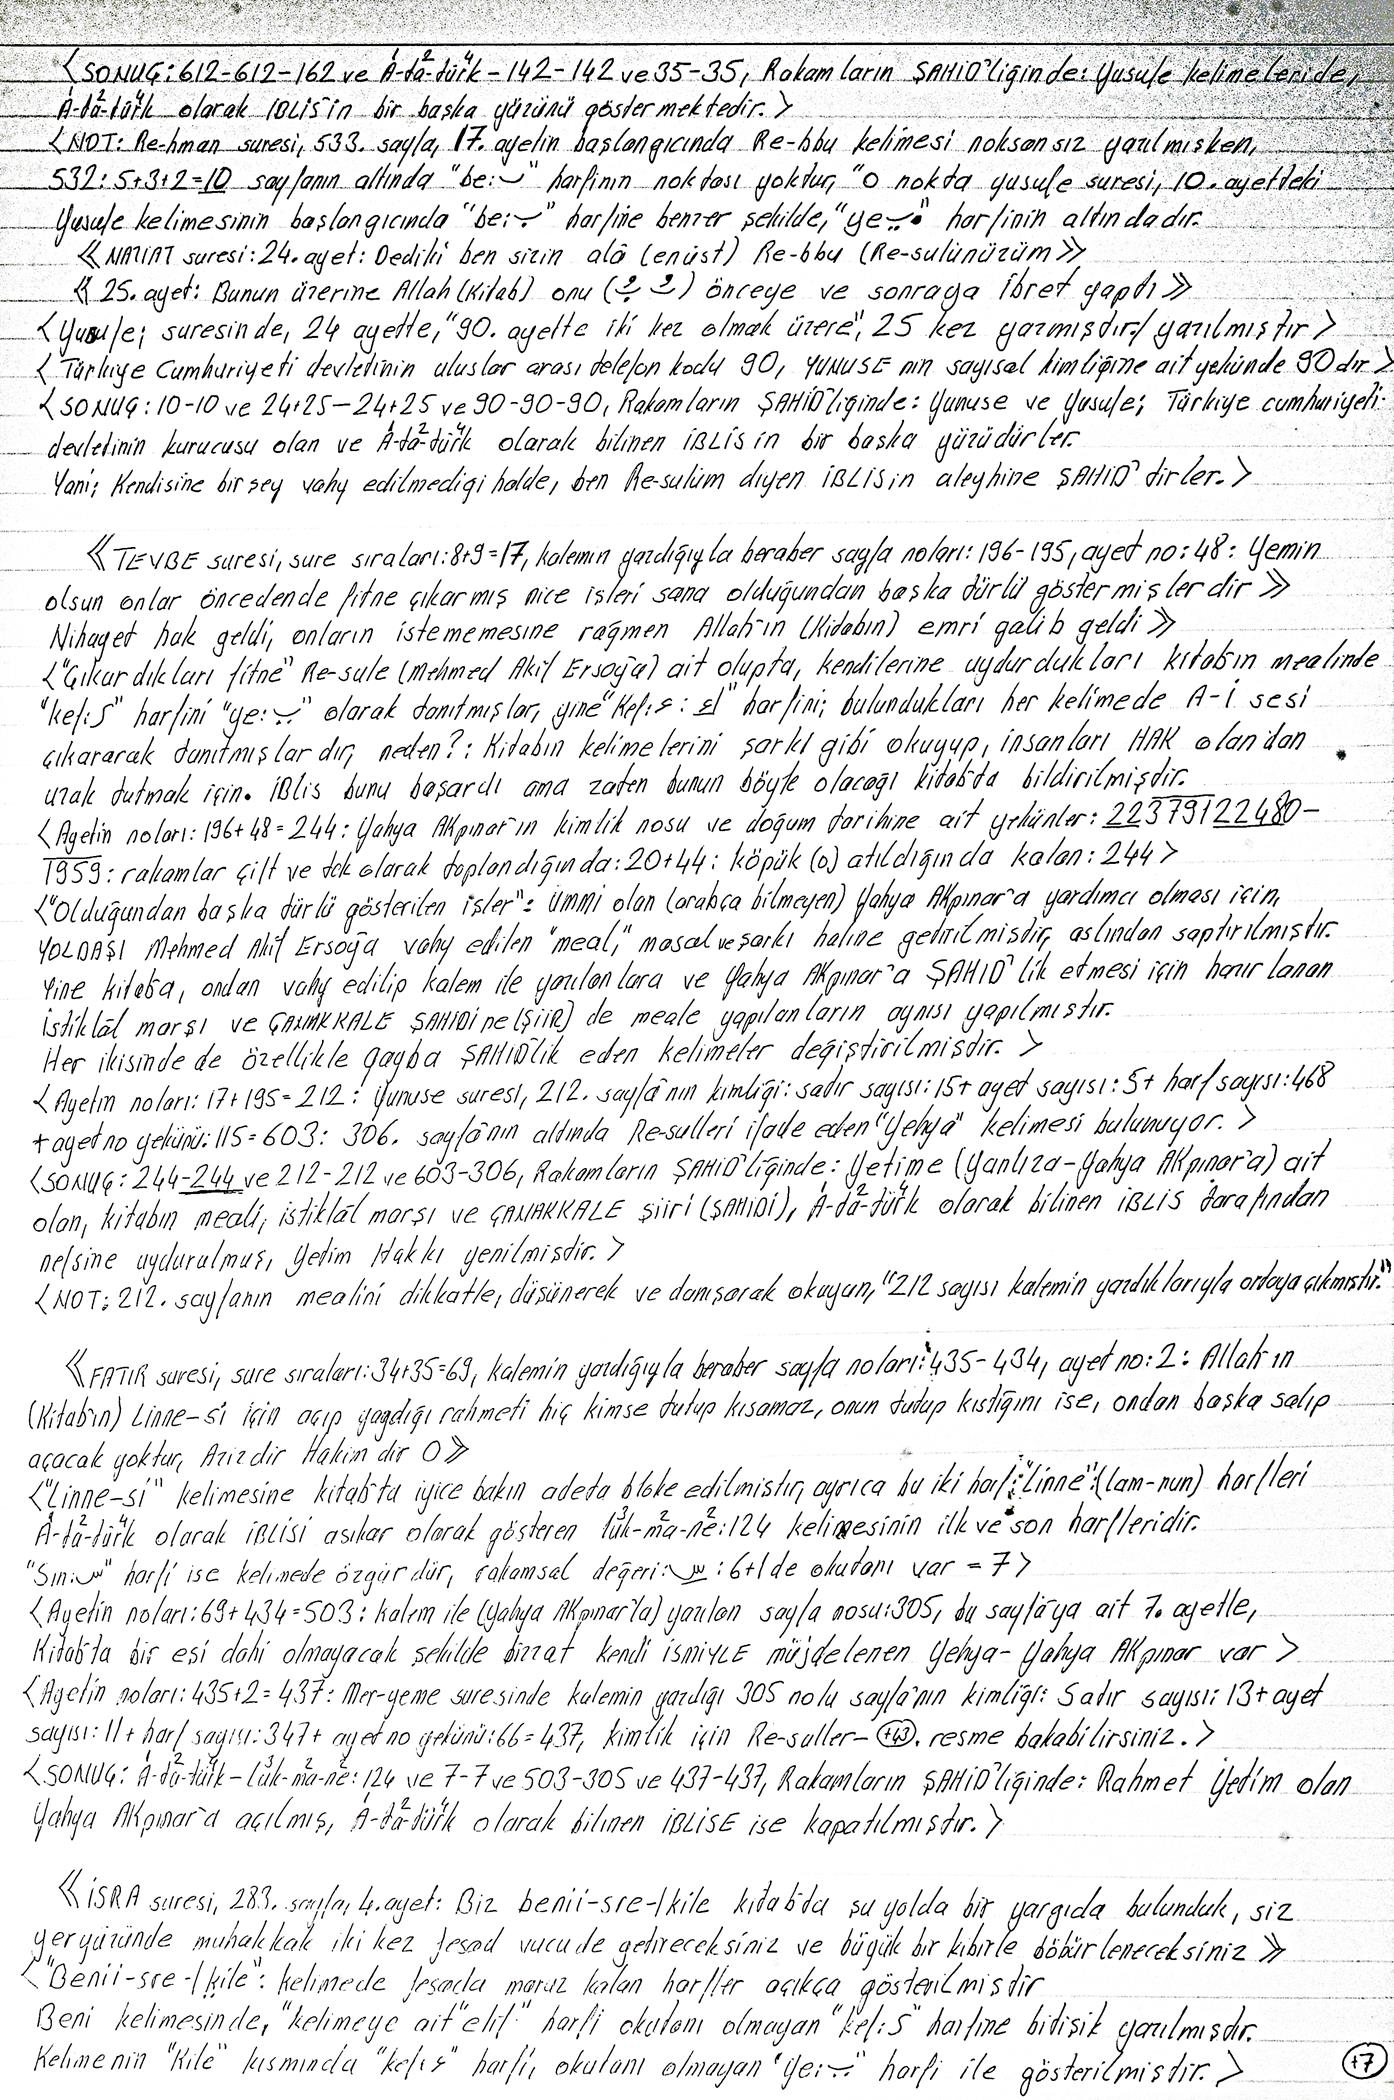 <SONUÇ: 612-612-162 ve A-ta²-tü⁴rk-142-142 ve 35-35, Rakamların ŞAHİD'liğinde: Yusufe kelimeleride,
A-ta²-tü⁴rk olarak İBLİS'in bir başka yüzünü göstermektedir.>
<NOT: Re-hman suresi, 533. sayfa, 17. ayetin başlangıcında Re-bbu kelimesi noksansız yazılmışken,
532: 5+3+2=10 sayfanın altında "be: ب" harfinin noktası yoktur, "o nokta yusufe suresi, 10. ayetteki
Yusufe kelimesinin başlangıcında "be: ب" harfine benzer şekilde, "ye" harfinin altındadır.
≪NAZİAT suresi: 24. ayet: Dediki ben sizin alâ (enüst) Re-bbu (Re-sulünüzüm≫
≪25. ayet: Bunun üzerine Allah (Kitab) onu önceye ve sonraya İbret yaptı≫
<Yusufe; suresinde, 24 ayette, "90. ayette iki kez olmak üzere", 25 kez yazmıştır/yazılmıştır>
<Türkiye Cumhuriyeti devletinin uluslar arası telefon kodu 90, YUNUSE nin sayısal kimliğine ait yekünde 90 dır>
<SONUÇ: 10-10 ve 24+25-24+25 ve 90-90-90, Rakamların ŞAHİD'liğinde: Yunuse ve Yusufe; Türkiye cumhuriyeti
devletinin kurucusu olan ve A-ta²-tü⁴rk olarak bilinen İBLİS in bir başka yüzüdürler.
Yani; Kendisine birşey vahy edilmediği halde, ben Re-sulüm diyen İBLİS in aleyhine ŞAHİD'dirler.>
≪TEVBE suresi, sure sıraları: 8+9=17, kalemin yazdığıyla beraber sayfa noları: 196-195, ayet no: 48: Yemin
olsun onlar öncedende fitne çıkarmış nice işleri sana olduğundan başka türlü göstermişlerdir≫
Nihayet hak geldi, onların istememesine rağmen Allah'ın (Kitabın) emri galib geldi≫
<"Çıkardıkları fitne" Re-sule (Mehmed Akif Ersoğa) ait olupta, kendilerine uydurdukları kitabın mealinde
"kef: S" harfini "ye:" olarak tanıtmışlar, yine "Kef:" harfini; bulundukları her kelimede A-İ sesi
çıkararak tanıtmışlardır, neden?: Kitabın kelimelerini şarkı gibi okuyup, insanları HAK olan'dan
uzak tutmak için. İBLİS bunu başardı ama zaten bunun böyle olacağı kitabta bildirilmiştir.
<Ayetin noları: 196+48=244: Yahya AKpınar'ın kimlik nosu ve doğum tarihine ait yekünler: 22379122480-
1959: rakamlar çift ve tek olarak toplandığında: 20+44: köpük (0) atıldığında kalan: 244>
<"Olduğundan başka türlü gösterilen işler": ÜMMİ olan (arabça bilmeyen) Yahya AKpınar'a yardımcı olması için,
YOLDAŞI Mehmed Akif Ersoğa vahy edilen "meal," masal ve şarkı haline getirilmiştir, aslından saptırılmıştır.
Yine kitaba, ondan vahy edilip kalem ile yazılanlara ve Yahya AKpınar'a ŞAHİD'lik etmesi için hazırlanan
İstiklâl marşı ve ÇANAKKALE ŞAHİDİ ne (ŞİİR) de meale yapılanların aynısı yapılmıştır.
Her ikisinde de özellikle gayba ŞAHİD'lik eden kelimeler değiştirilmiştir.>
<Ayetin noları: 17+195=212: Yunuse suresi, 212. sayfâ'nın kimliği: satır sayısı: 15+ ayet sayısı: 5+ harf sayısı: 468
+ayet no yekünü: 115=603: 306. sayfâ'nın altında Re-sulleri ifade eden "Yehya" kelimesi bulunuyor.>
<SONUÇ: 244-244 ve 212-212 ve 603-306, Rakamların ŞAHİD'liğinde: Yetime (Yanlıza-Yahya AKpınar'a) ait
olan, kitabın meali, istiklâl marşı ve ÇANAKKALE şiiri (ŞAHİDİ), A-ta²-tü⁴rk olarak bilinen İBLİS tarafından
nefsine uydurulmuş, Yetim Hakkı yenilmiştir.>
<NOT: 212. sayfanın mealini dikkatle, düşünerek ve danışarak okuyan, "212 sayısı kalemin yazdıklarıyla ortaya çıkmıştır."
≪FATIR suresi, sure sıraları: 34+35=69, kalemin yazdığıyla beraber sayfa noları: 435-434, ayet no: 2: Allah'ın
(Kitab'ın) Linne-si için açıp yaydığı rahmeti hiç kimse tutup kısamaz, onun tutup kıstığını ise, ondan başka salıp
açacak yoktur, Azizdir Hakim dir O≫
<"Linne-si" kelimesine kitab'ta iyice bakın adeta bloke edilmiştir, ayrıca bu iki harf: "Linne": (lam-nun) harfleri
A-ta²-tü⁴rk olarak İBLİSİ aşikar olarak gösteren lü³k-ma²-ne²: 124 kelimesinin ilk ve son harfleridir.
"Sin: س" harfi ise kelimede özgürdür, rakamsal değeri: س: 6+1 de okutanı var = 7>
<Ayetin noları: 69+434=503: kalem ile (Yahya AKpınar'la) yazılan sayfa nosu: 305, bu sayfâ'ya ait 7. ayetle,
Kitabta bir eşi dahi olmayacak şekilde bizzat kendi isMİYLE müjdelenen Yehya-Yahya AKpınar var>
<Ayetin noları: 435+2=437: Mer-yeme suresinde kalemin yazdığı 305 nolu sayfâ'nın kimliği: Satır sayısı: 13+ ayet
sayısı: 11+ harf sayısı: 347+ ayet no yekünü: 66=437, kimlik için Re-suller- +43. resme bakabilirsiniz.>
<SONUÇ: A-ta²-tü⁴rk-lü³k-ma²-ne²: 124 ve 7-7 ve 503-305 ve 437-437, Rakamların ŞAHİD'liğinde: Rahmet Yetim olan
Yahya AKpınar'a açılmış, A-ta²-tü⁴rk olarak bilinen İBLİSE ise kapatılmıştır.>
≪İSRA suresi, 283. sayfa, 4. ayet: Biz benii-sre-/kile kitab'ta şu yolda bir yargıda bulunduk, siz
yeryüzünde muhakkak iki kez fesad vucude getireceksiniz ve büyük bir kibirle böbürleneceksiniz≫
<"Benii-sre-/kile": kelimede fesada maruz kalan harfler açıkça gösterilmiştir
Beni kelimesinde, "kelimeye ait "elif" harfi okutanı olmayan "kef: S" harfine bitişik yazılmıştır.
Kelimenin "Kile" kısmında "kef:" harfi, okutanı olmayan "ye:" harfi ile gösterilmiştir.>
+7